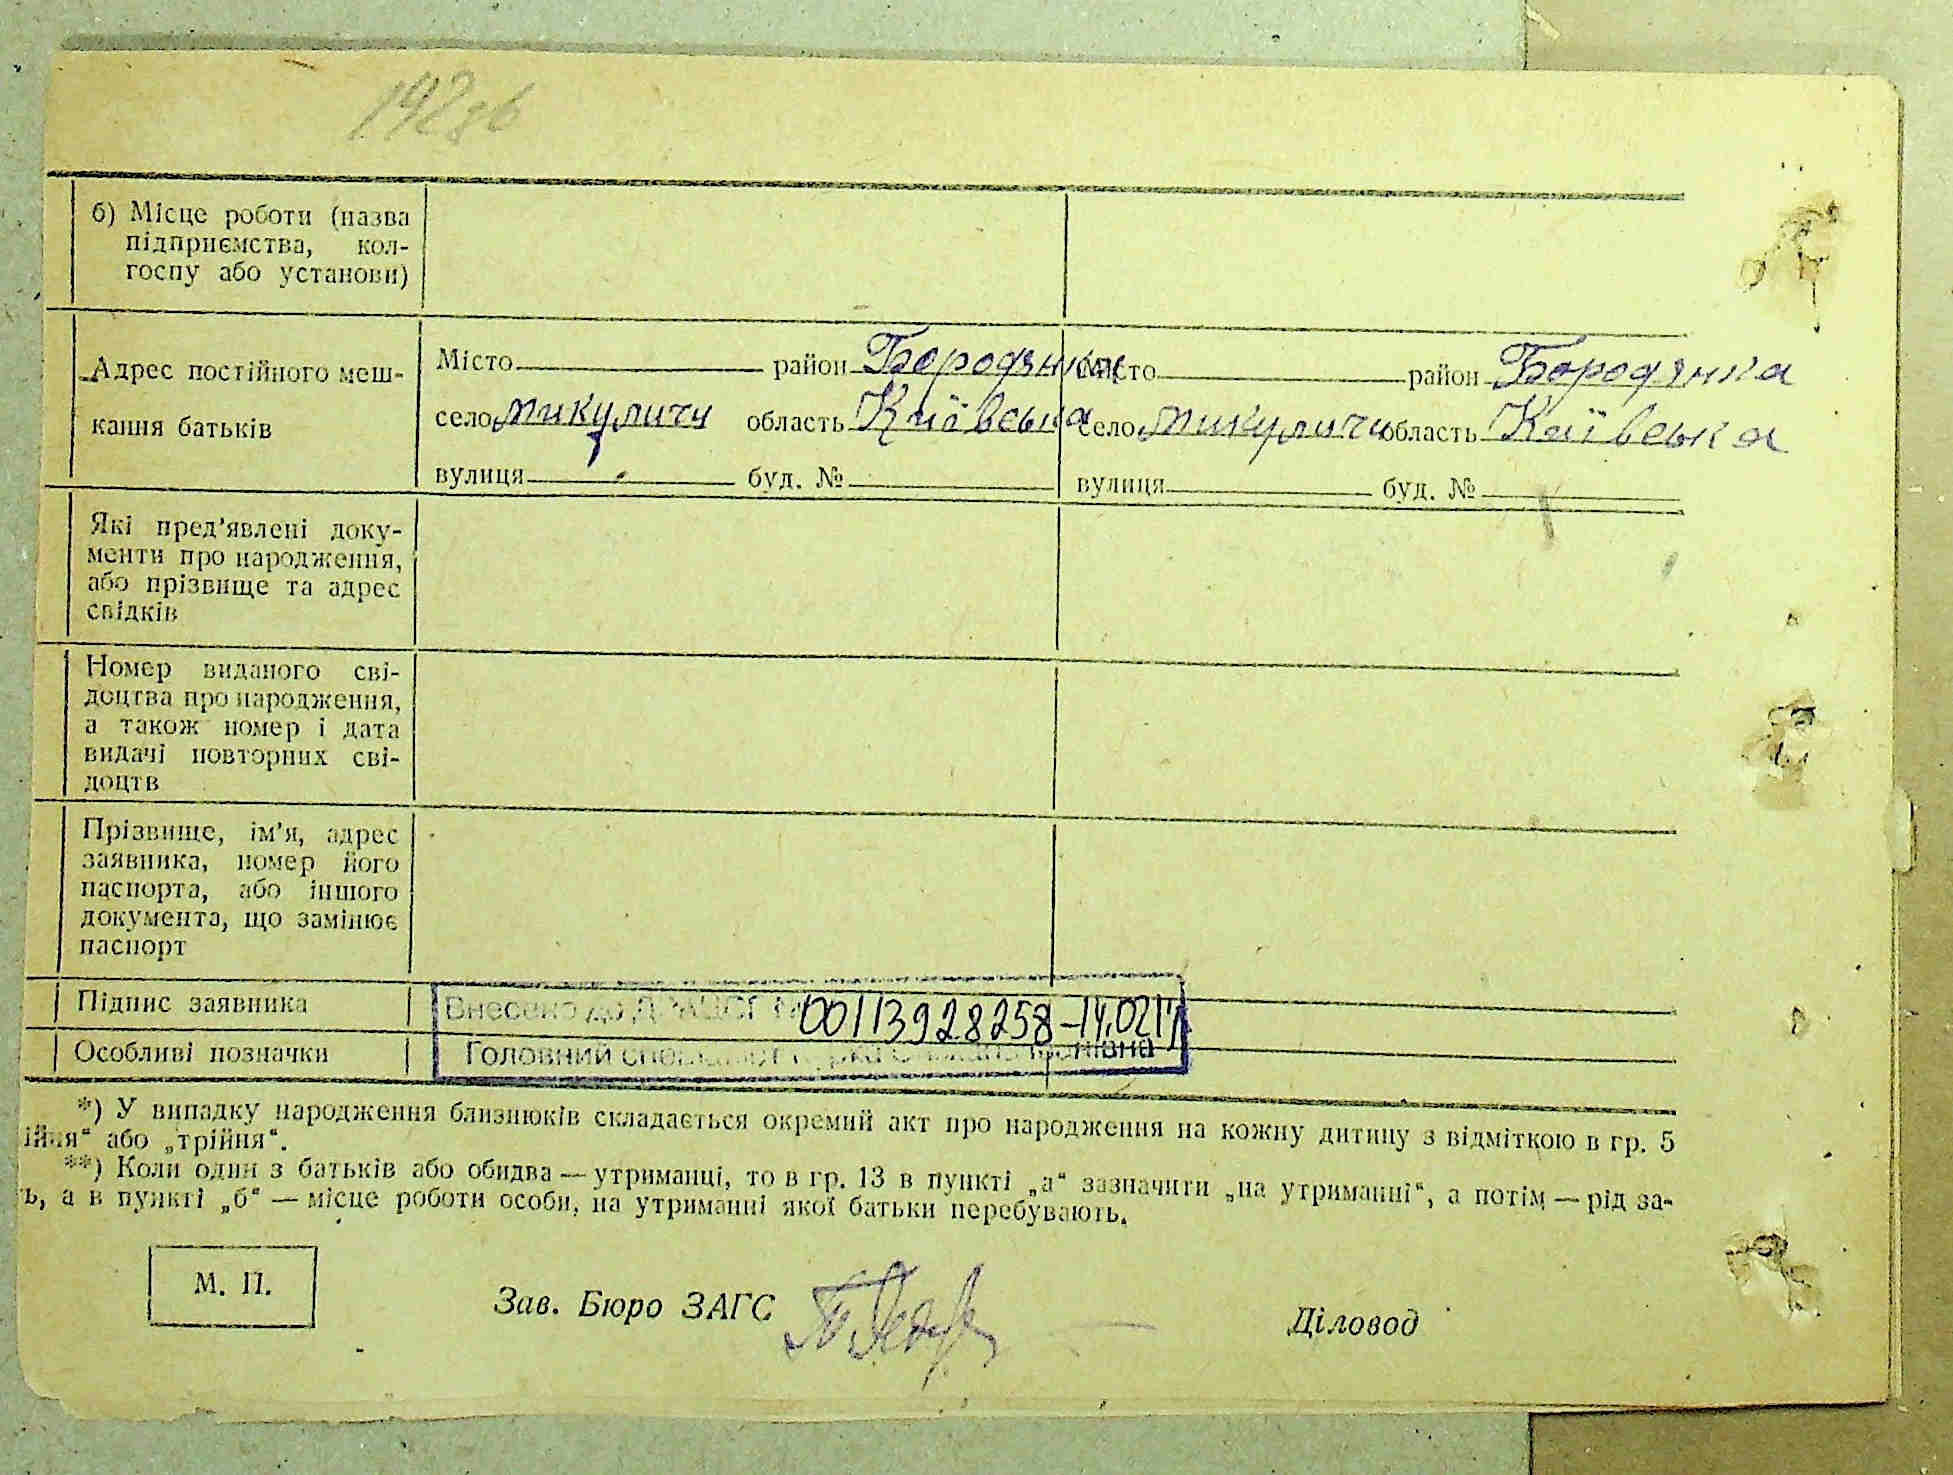 192
б) Місце роботи (назва
підприємства, кол-
госпу або установи)
Адрес постійного меш-
кання батьків
Місто район Бородянка
село Микуличи область Київська
вулиця буд. №
Місто район Бородянка
село Микуличи область Київська
вулиця буд. №
Які пред'явлені доку-
менти про народження,
або прізвище та адрес
свідків
Номер виданого сві-
доцтва про народження,
а також номер і дата
видачі повторних сві-
доцтв
Прізвище, ім'я, адрес
заявника, номер його
паспорта, або іншого
документа, що замінює
паспорт
Підпис заявника
Внесено до ДРАЦСГ № 00113928258-14.0217
Особливі позначки
Головний спеціаліст
*) У випадку народження близнюків складається окремий акт про народження на кожну дитину з відміткою в гр. 5
ійня" або „трійня".
**) Коли один з батьків або обидва — утриманці, то в гр. 13 в пункті „а" зазначити „на утриманні", а потім — рід за-
ь, а в пункті „б" — місце роботи особи, на утриманні якої батьки перебувають.
М. П.
Зав. Бюро ЗАГС
Діловод